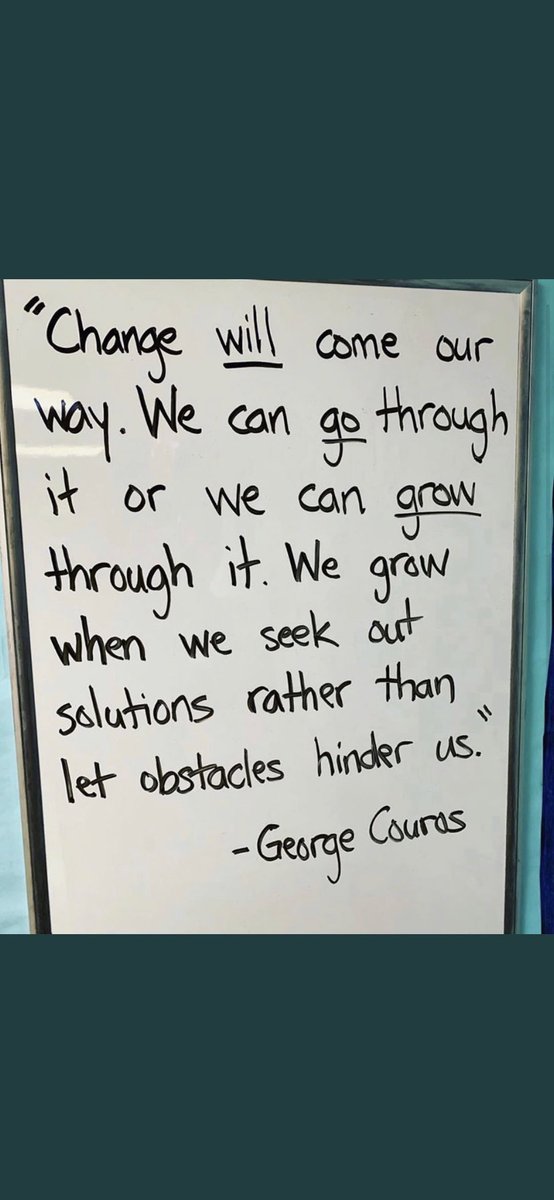 "Change will come our
way. We can go through
it or we can grow
through it. We grow
when we seek out
solutions rather than
let obstacles hinder us."
-George Couros